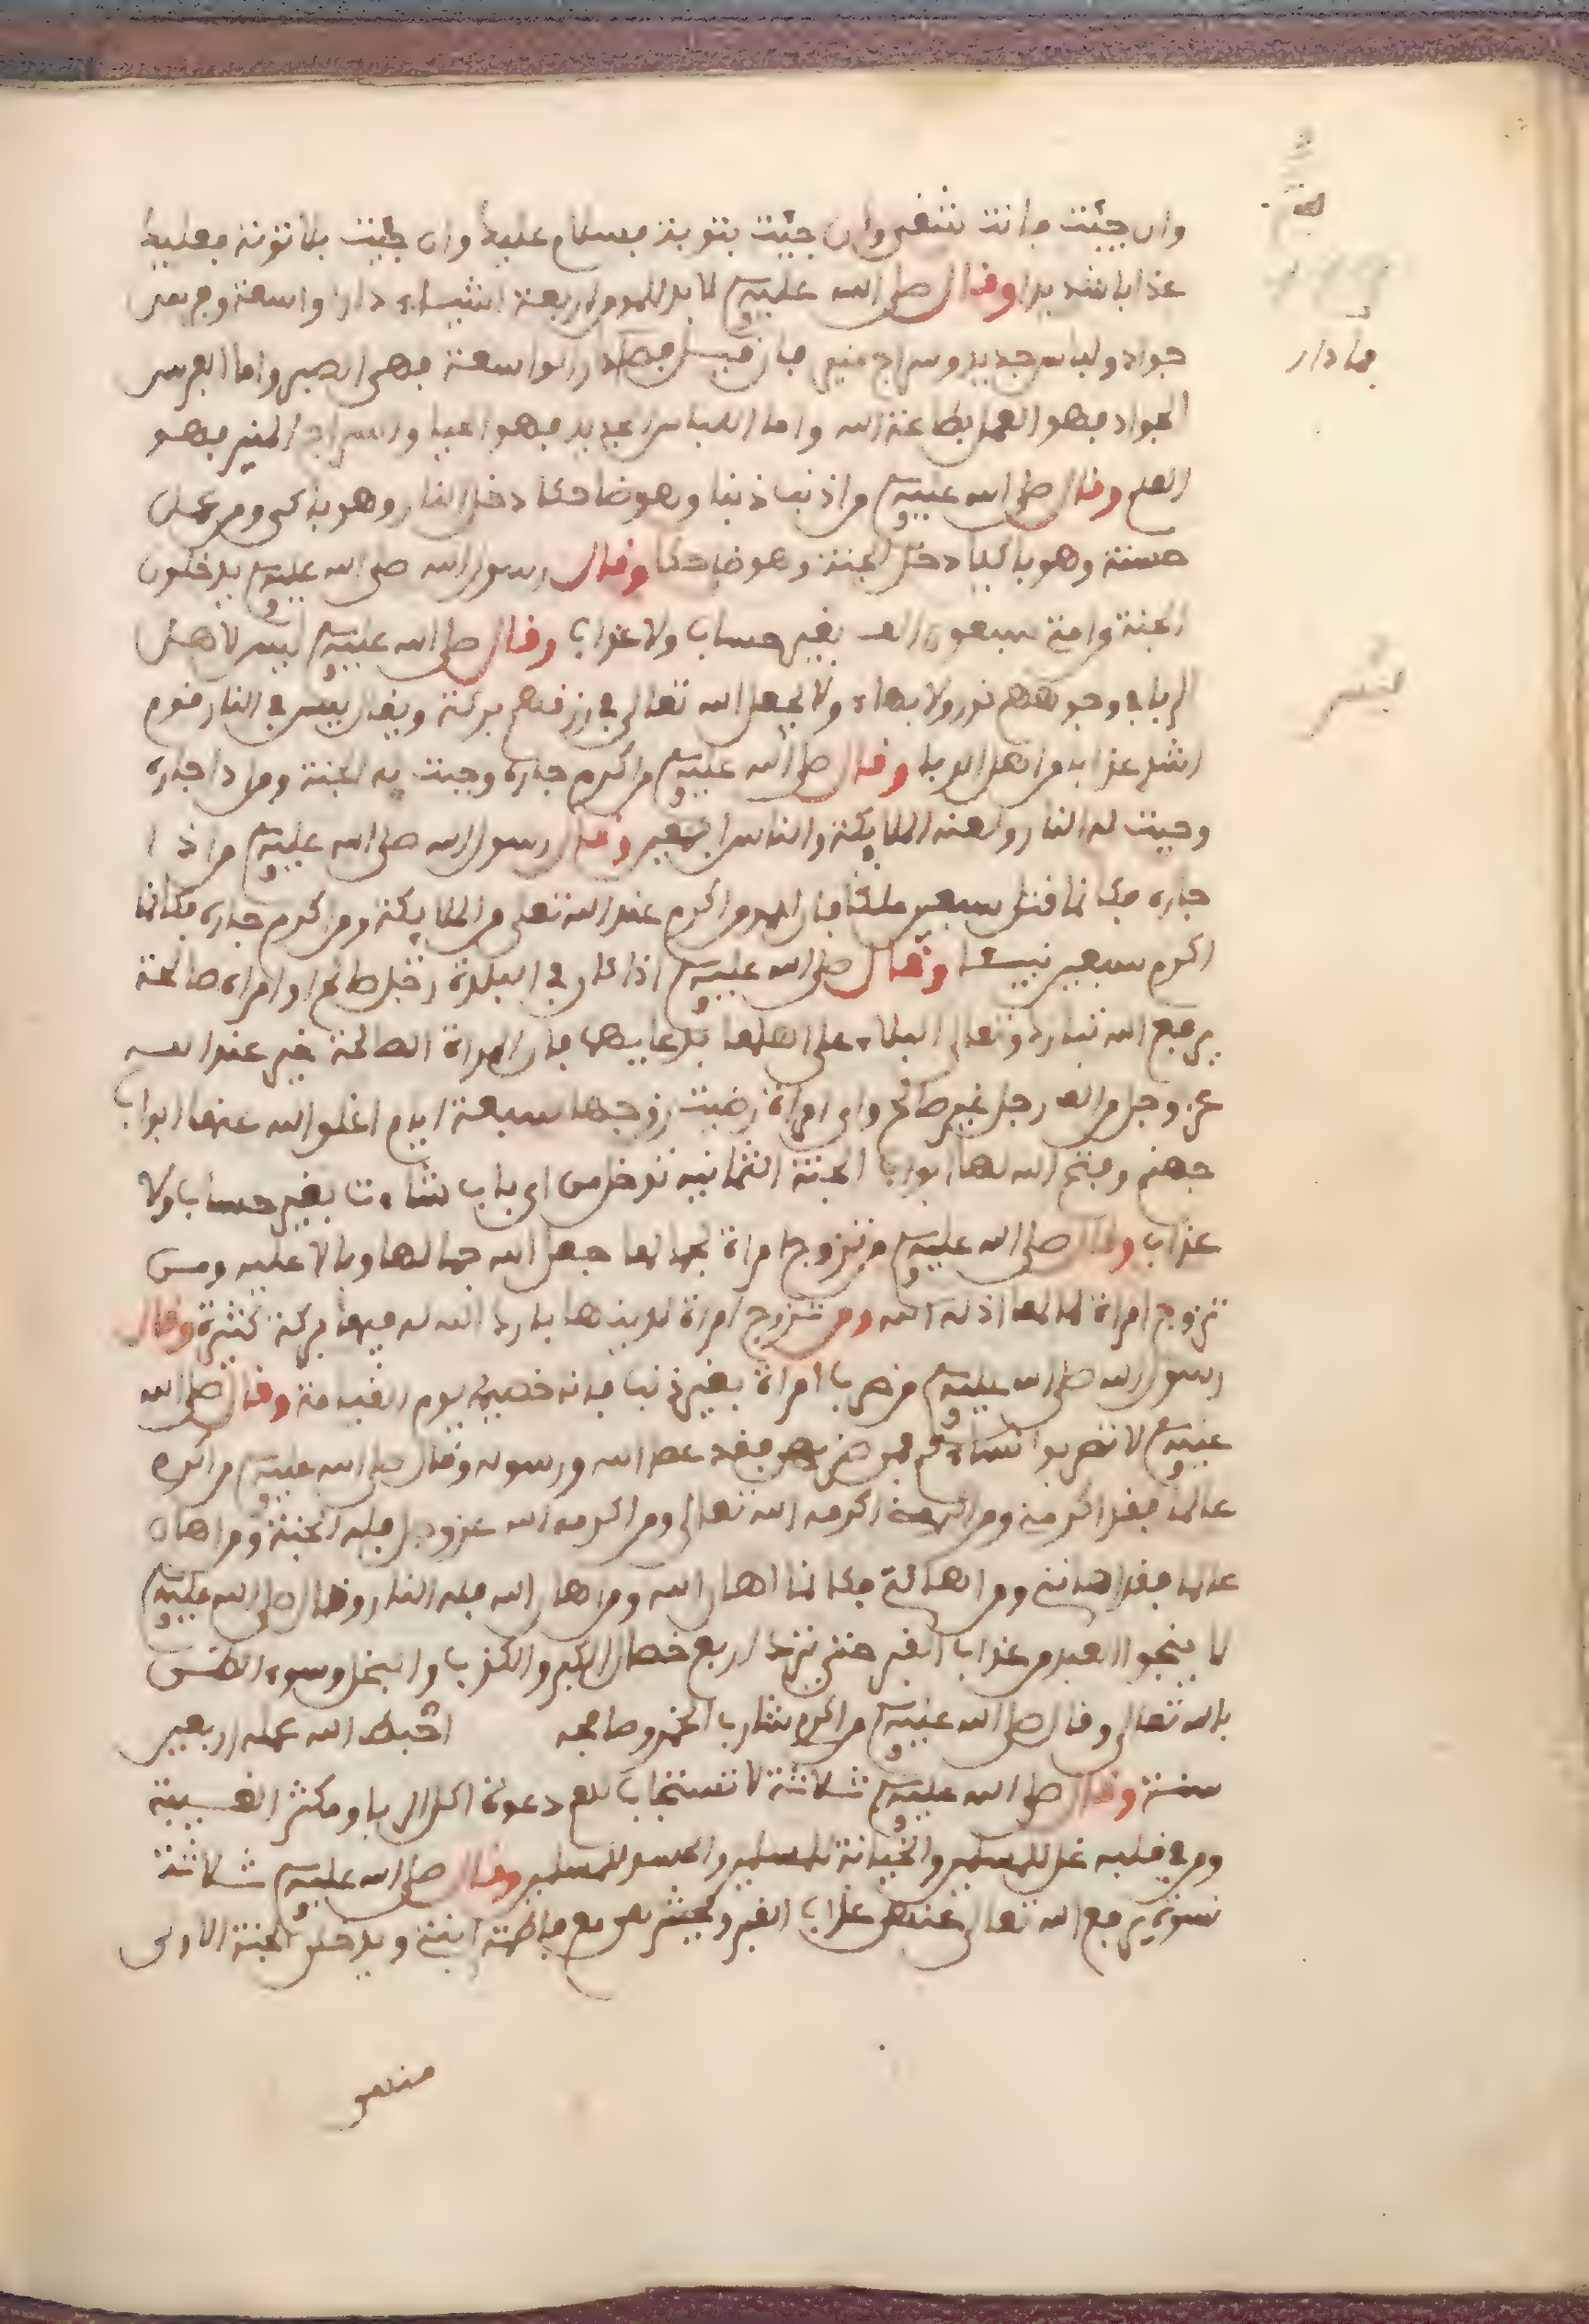 وان جيت فانت شفي وان جيت بتوبة فسلام عليك وان جيت بلا توبة فعليك
عذابا شديدا وقال صلى الله عليه وسلم لا بد للمومن اربعة اشياء دار واسعة وفرس
جواد ولباس جديد وسراج منير فان قيل دار واسعة فهي الصبر واما الفرس
الجواد فهو العمل بطاعة الله واما اللباس الجديد فهو الحيا والسراج المنير فهو
العلم وقال صلى الله عليه وسلم من اذنب ذنبا وهو ضاحكا دخل النار وهو باكي ومن عمل
حسنة وهو باكيا دخل الجنة وهو ضاحكا وقال رسول الله صلى الله عليه وسلم يدخلون
الجنة من امة سبعون الف بغير حساب ولا عذاب وقال صلى الله عليه وسلم ليس لاهل
الربا في وجوههم نور ولا بهاء ولا يجعل الله تعالى في رزقهم بركة ويقال ليس في النار قوم
اشد عذاب من اهل الربا وقال صلى الله عليه وسلم من اكرم جاره وجبت له الجنة ومن اذا جاره
وجبت له النار ولعنه الملايكة والناس اجمعين وقال رسول الله صلى الله عليه وسلم من اذا
جاره فكانما قتل سبعين ملكا فان المومن اكرم عند الله تعلى من الملايكة ومن اكرم جاره فكانما
اكرم سبعين نبيا وقال صلى الله عليه وسلم اذا كان في البلدة رجل صالح او امراة صالحة
يرفع الله تبارك وتعالى البلاء على اهلها بدعايهما فان المراة الصالحة خير عند الله
عز وجل من الف رجل غير صالح واي امراة رضيت زوجها سبعة ايام اغلق الله عنها ابواب
جهنم وفتح الله لها ابواب الجنة الثمانية تدخل من اي باب شاءت بغير حساب ولا
عذاب وقال صلى الله عليه وسلم من تزوج امراة لجمالها جعل الله جمالها وبالا عليه ومن
تزوج امراة لمالها اذله الله ومن تزوج امراة لدينها بارك الله له فيها بركة كثيرة وقال
رسول الله صلى الله عليه وسلم من ضرب امراة بغير ذنب فانه خصيمه يوم القيامة وقال صلى الله
عليه وسلم لا تضربوا نساءكم فمن ضربهن فقد عصا الله ورسوله وقال صلى الله عليه وسلم من اكرم
عالما فقد اكرمني ومن اكرمني اكرمه الله تعالى ومن اكرمه الله عز وجل فله الجنة ومن اهان
عالما فقد اهانني ومن اهانني فكانما اهان الله ومن اهان الله فله النار وقال صلى الله عليه وسلم
لا ينجوا العبد من عذاب القبر حتى يترك اربع خصال الكبر والكذب والبخل وسوء الظن
بالله تعالى وقال صلى الله عليه وسلم من اكرم شارب الخمر وصافحه احبط الله عمله اربعين
سنة وقال صلى الله عليه وسلم ثلاثة لا تستجاب لهم دعوة اكل الربا ومكثر الغيبة
ومن في قلبه غل للمسلمين والخيانة للمسلمين والحسد للمسلمين وقال صلى الله عليه وسلم ثلاثة
نسوة يرفع الله تعالى عنهن عذاب القبر ويحشرهن مع فاطمة ابنتي ويدخلن الجنة الاولى
فما دار